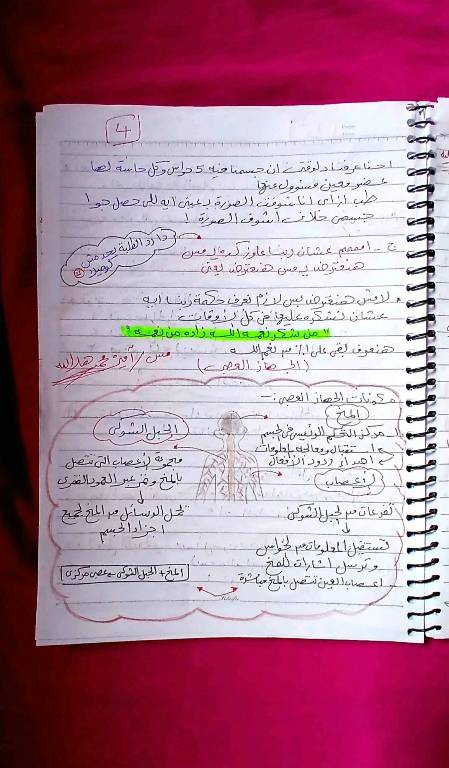 4
احنا عرفنا دلوقتى ان جسمنا فيه 5 حواس وكل حاسة لها
عضو معين مسؤول عنها
طب ازاى انا شوفت الصورة يعنى ايه اللى حصل جوا
جسمى خلانى اشوف الصورة !
ج - امممم عشان ربنا عاوز كده يا ميس
هنعترض يا ميس هنعترض يعنى
دا رد الطلبة بعد مش
لا مش هنعترض بس لازم نعرف حكمة ربنا ايه
عشان نشكره عليها فى كل الأوقات
"من شكر نعمه الله زاده من نعمه"
هنعرف يعنى على نعم الله
ميس / أميرة محمد هدالله
( الجهاز العصبى )
مكونات الجهاز العصبى :-
المخ
مركز التحكم الرئيسى فى الجسم
استقبال ومعالجه المعلومات
اصدار ردود الأفعال
الحبل الشوكى
مجموعة الأعصاب التى تتصل
بالمخ وتمر عبر العمود الفقرى
↓
نقل الرسائل من المخ لجميع
اجزاء الجسم
الأعصاب
تفرعات من الحبل الشوكى
↓
تستقبل المعلومات من الحواس
وترسل اشارات للمخ
اعصاب العين تتصل بالمخ مباشرة
المخ + الحبل الشوكى = عصبى مركزى